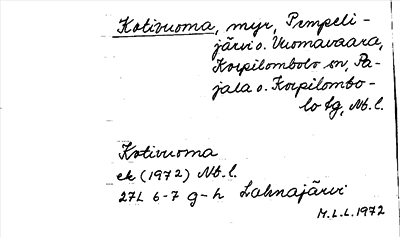 Kotivuoma, myr, Pempeli-
järvi o. Vuomavaara,
Korpilombolo sn, Pa-
jala o. Korpilombo-
lo tg, Nb. l.
Kotivuoma
ek (1972) Nb. l.
27L 6-7 g-h Lahnajärvi
M.L.L. 1972